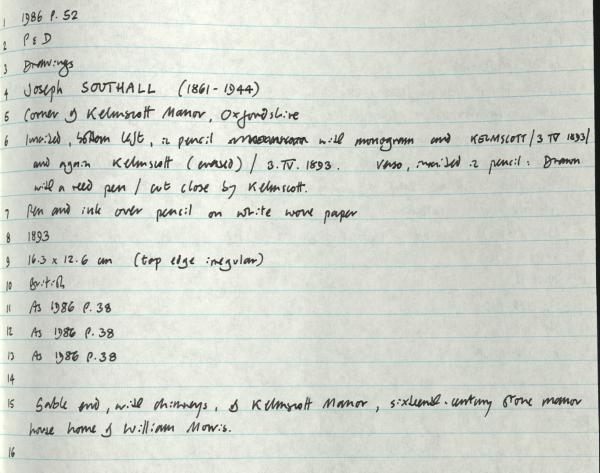 1 1986 P. 52
2 P & D
3 Drawings
4 Joseph SOUTHALL (1861-1944)
5 Corner of Kelmscott Manor, Oxfordshire
6 Inscribed, bottom left, in pencil with monogram and KELMSCOTT / 3 IV 1893/
and again Kelmscott (erased) / 3. IV. 1893. Verso, inscribed in pencil: Drawn
with a reed pen / cut close by Kelmscott.
7 Pen and ink over pencil on white wove paper
8 1893
9 16.3 x 12.6 cm (top edge irregular)
10 British
11 As 1986 P. 38
12 As 1986 P. 38
13 As 1986 P. 38
14
15 Gable end, with chimneys, of Kelmscott Manor, sixteenth-century stone manor
house home of William Morris.
16